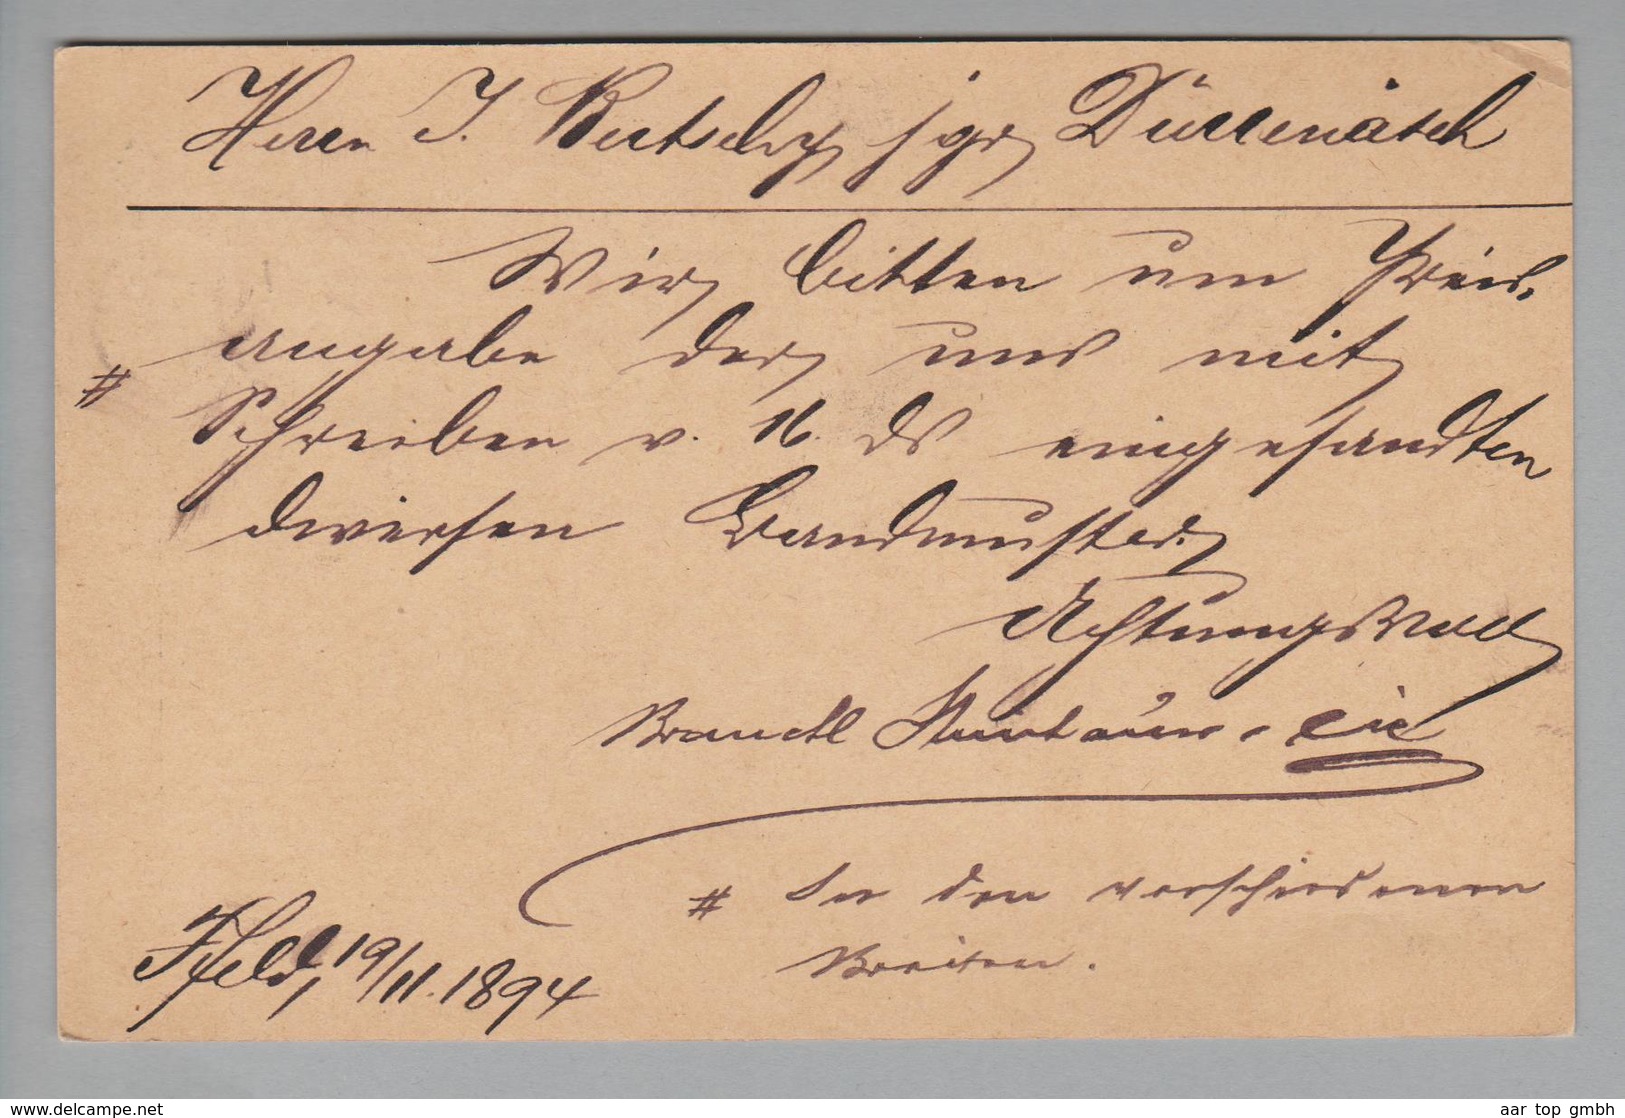 Herrn J. Bertschy jgr Dürrenäsch
Wir bitten um Preis-
angabe der uns mit
#
Schreiben v. 16. ds eingesandten
diversen Bandmuster.
Achtungsvoll
Brandl & Cie
# In den verschiedenen
Breiten.
Ffeld, 19/11. 1894
www.delcampe.net
aar top gmbh